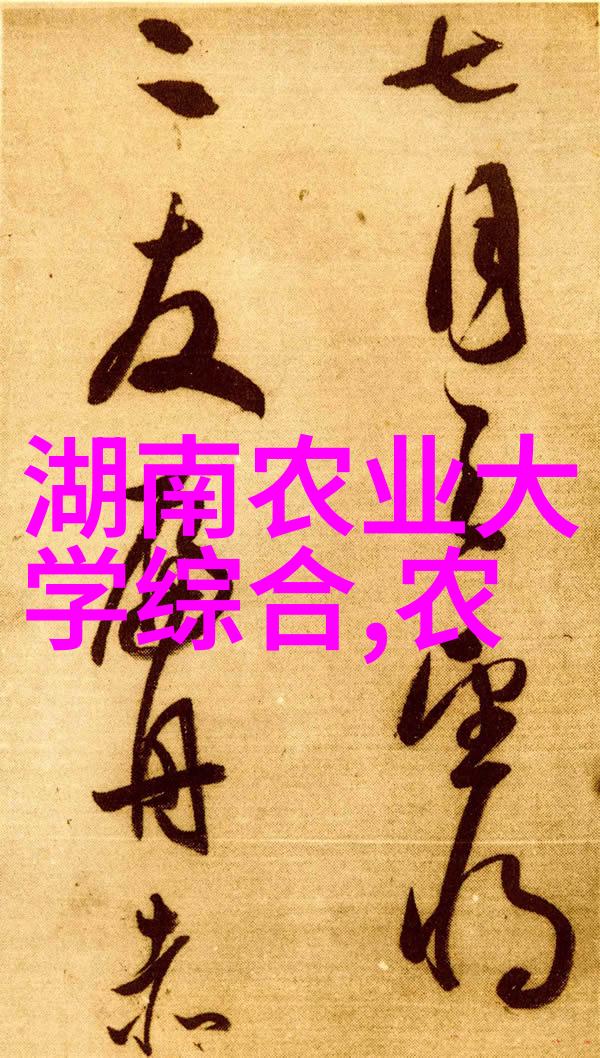 湖南农业大
学综合,农
七月望
二友舟赤